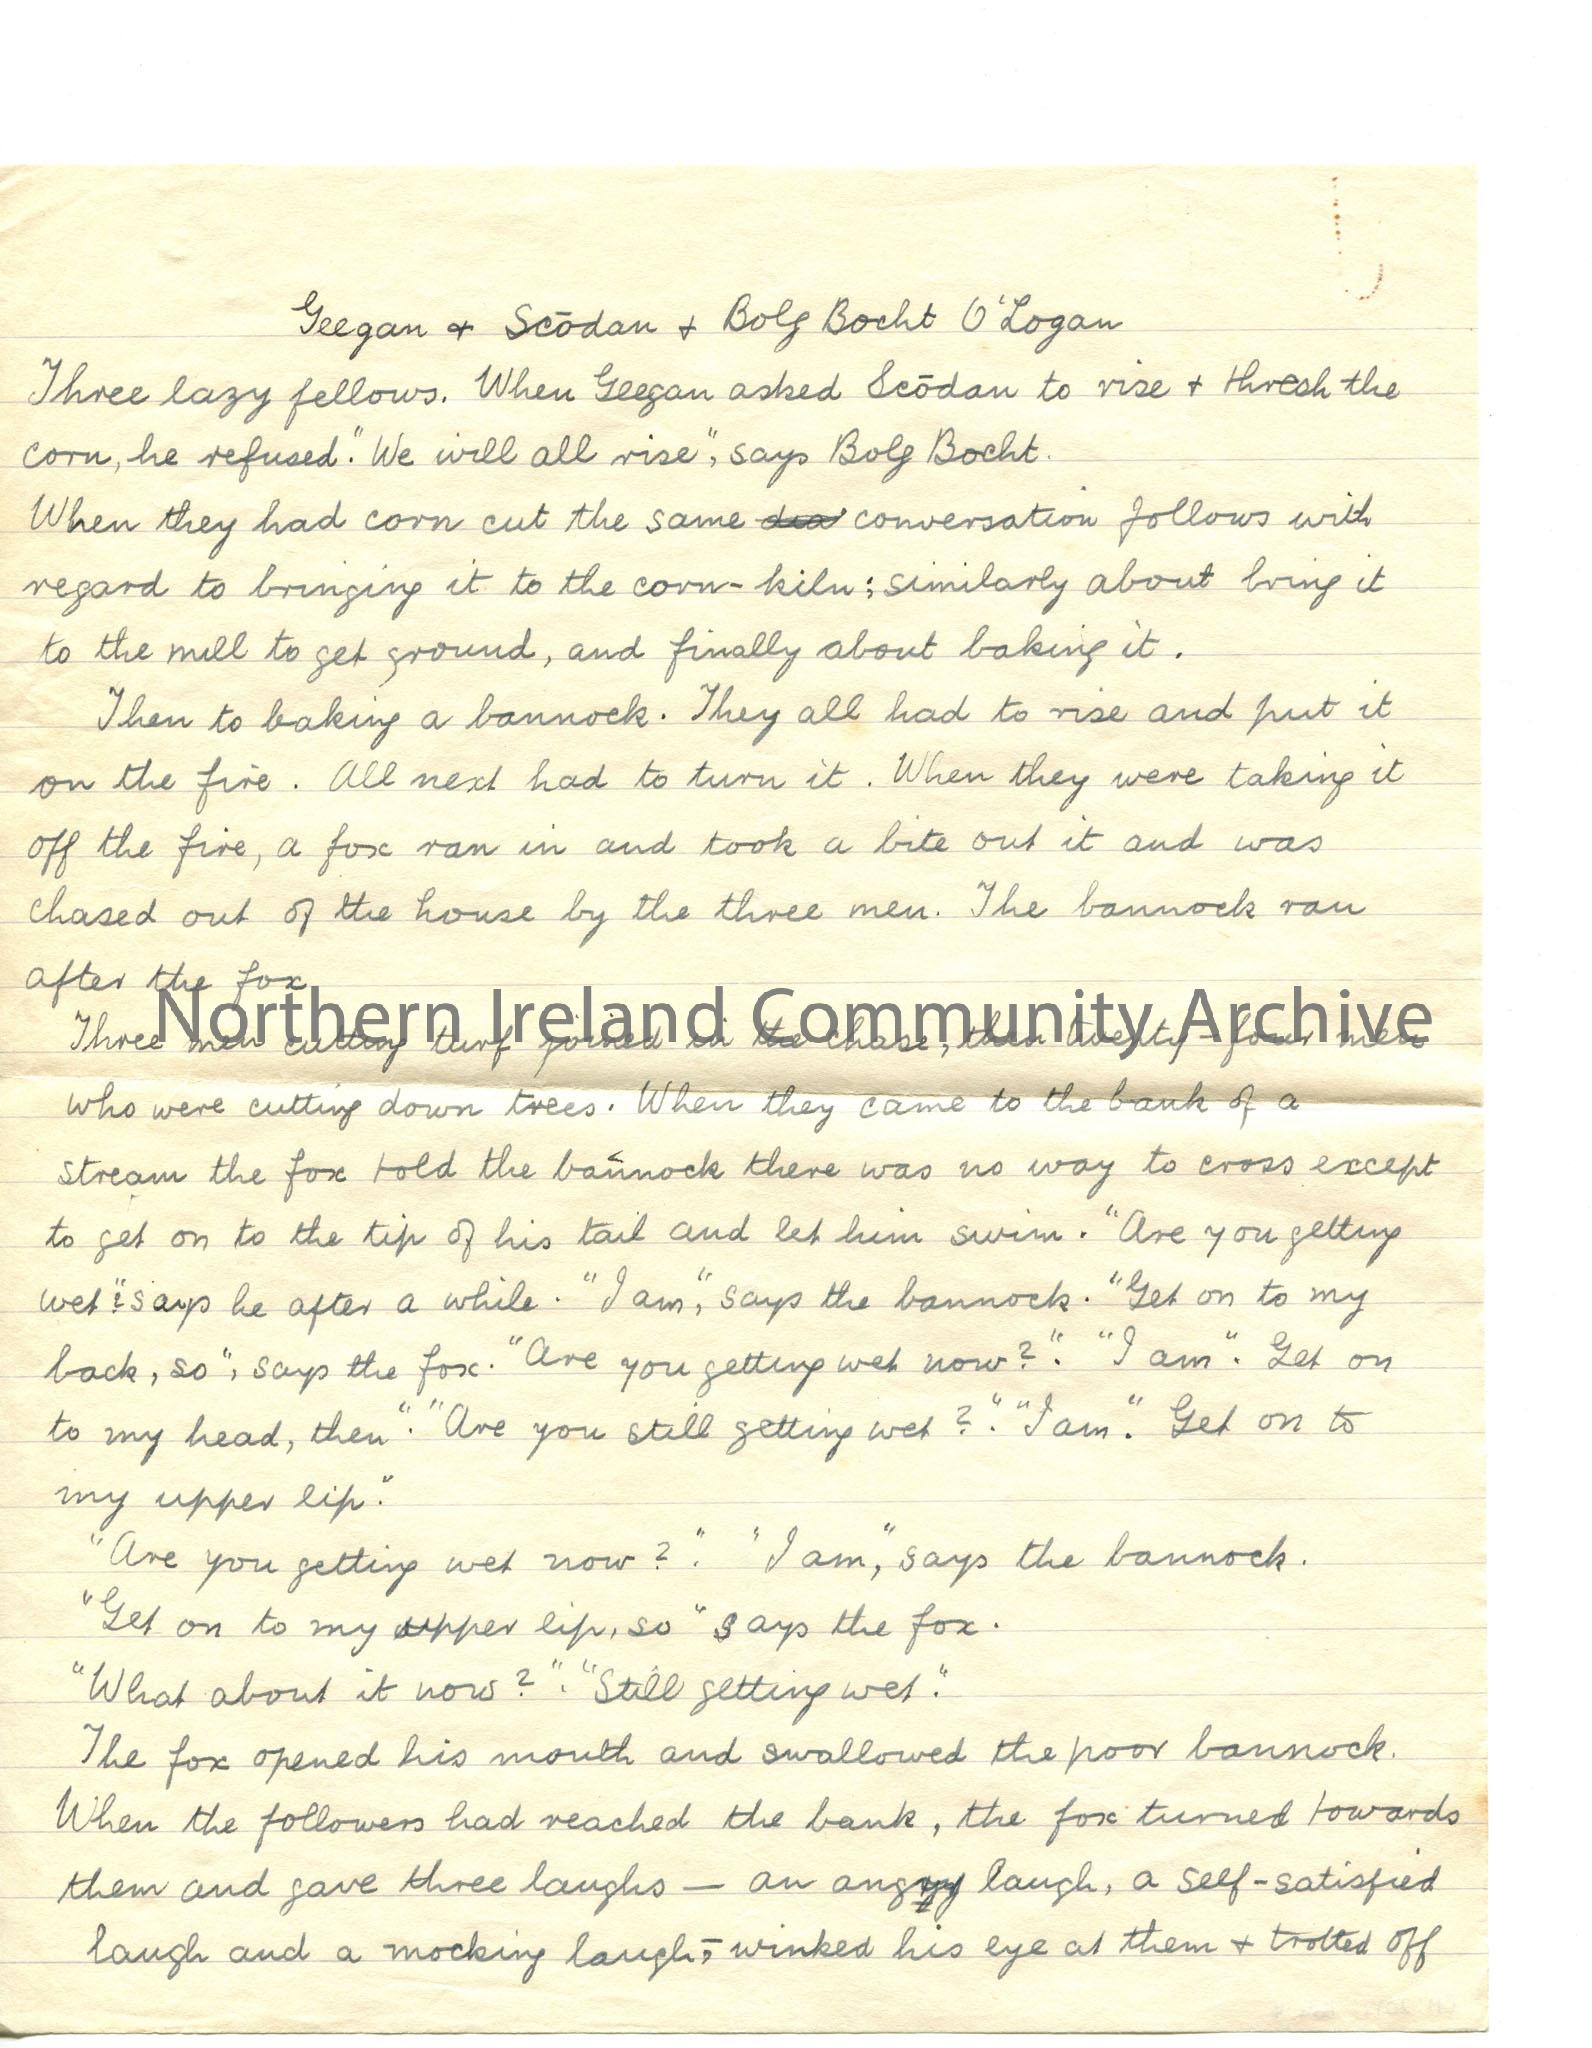 Geegan + Scōdan + Bolg Bocht O'Logan
Three lazy fellows. When Geegan asked Scōdan to rise + thresh the
corn, he refused. "We will all rise", says Bolg Bocht.
When they had corn cut the same conversation follows with
regard to bringing it to the corn-kiln; similarly about bring it
to the mill to get ground, and finally about baking it.
Then to baking a bannock. They all had to rise and put it
on the fire. All next had to turn it. When they were taking it
off the fire, a fox ran in and took a bite out it and was
chased out of the house by the three men. The bannock ran
after the fox
Northern Ireland Community Archive
Three men cutting turf joined in the chase, then twenty-four men
who were cutting down trees. When they came to the bank of a
stream the fox told the bannock there was no way to cross except
to get on to the tip of his tail and let him swim. "Are you getting
wet"? says he after a while. "I am", says the bannock. "Get on to my
back, so", says the fox. "Are you getting wet now?". "I am". Get on
to my head, then". "Are you still getting wet?". "I am". Get on to
my upper lip."
"Are you getting wet now?". "I am", says the bannock.
"Get on to my upper lip, so" says the fox.
"What about it now?". "Still getting wet".
The fox opened his mouth and swallowed the poor bannock.
When the followers had reached the bank, the fox turned towards
them and gave three laughs — an angry laugh, a self-satisfied
laugh and a mocking laugh; – winked his eye at them + trotted off